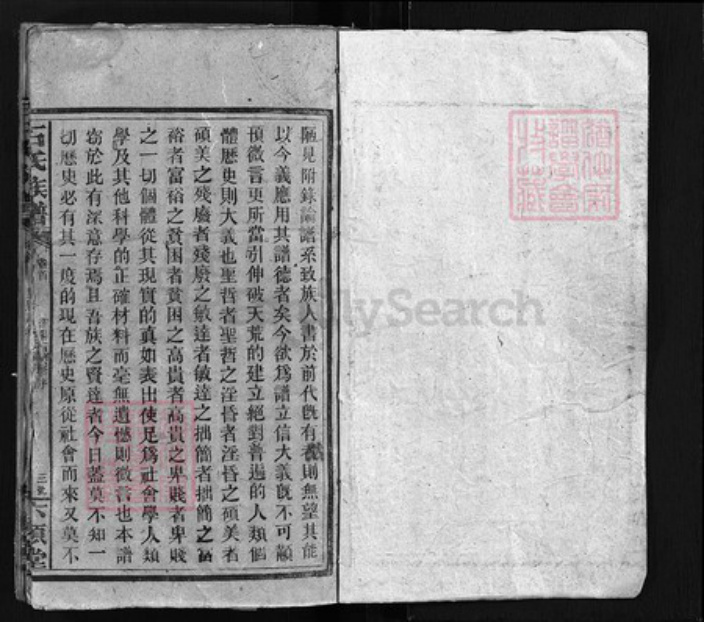 陋見附錄論譜系致族人書於前代旣有者則無望其能
以今義應用其譜德者矣今欲爲譜立信大義旣不可顯
頂微言更所當引伸破天荒的建立絕對普遍的人類個
體歷史則大義也聖哲者聖哲之淫昏者淫昏之碩美者
碩美之殘廢者殘廢之敏達者敏達之拙簡者拙簡之富
裕者富裕之貧困者貧困之高貴者高貴之卑賤者卑賤
之一切個體從其現實的眞如表出使足爲社會學人類
學及其他科學的正確材料而毫無遺憾則微言也本譜
窃於此有深意存焉且吾族之賢達者今日蓋莫不知一
切歷史必有其一度的現在歷史原從社會而來又莫不
石氏族譜
卷首
三
六順堂
道他家譜學會收藏
MySearch